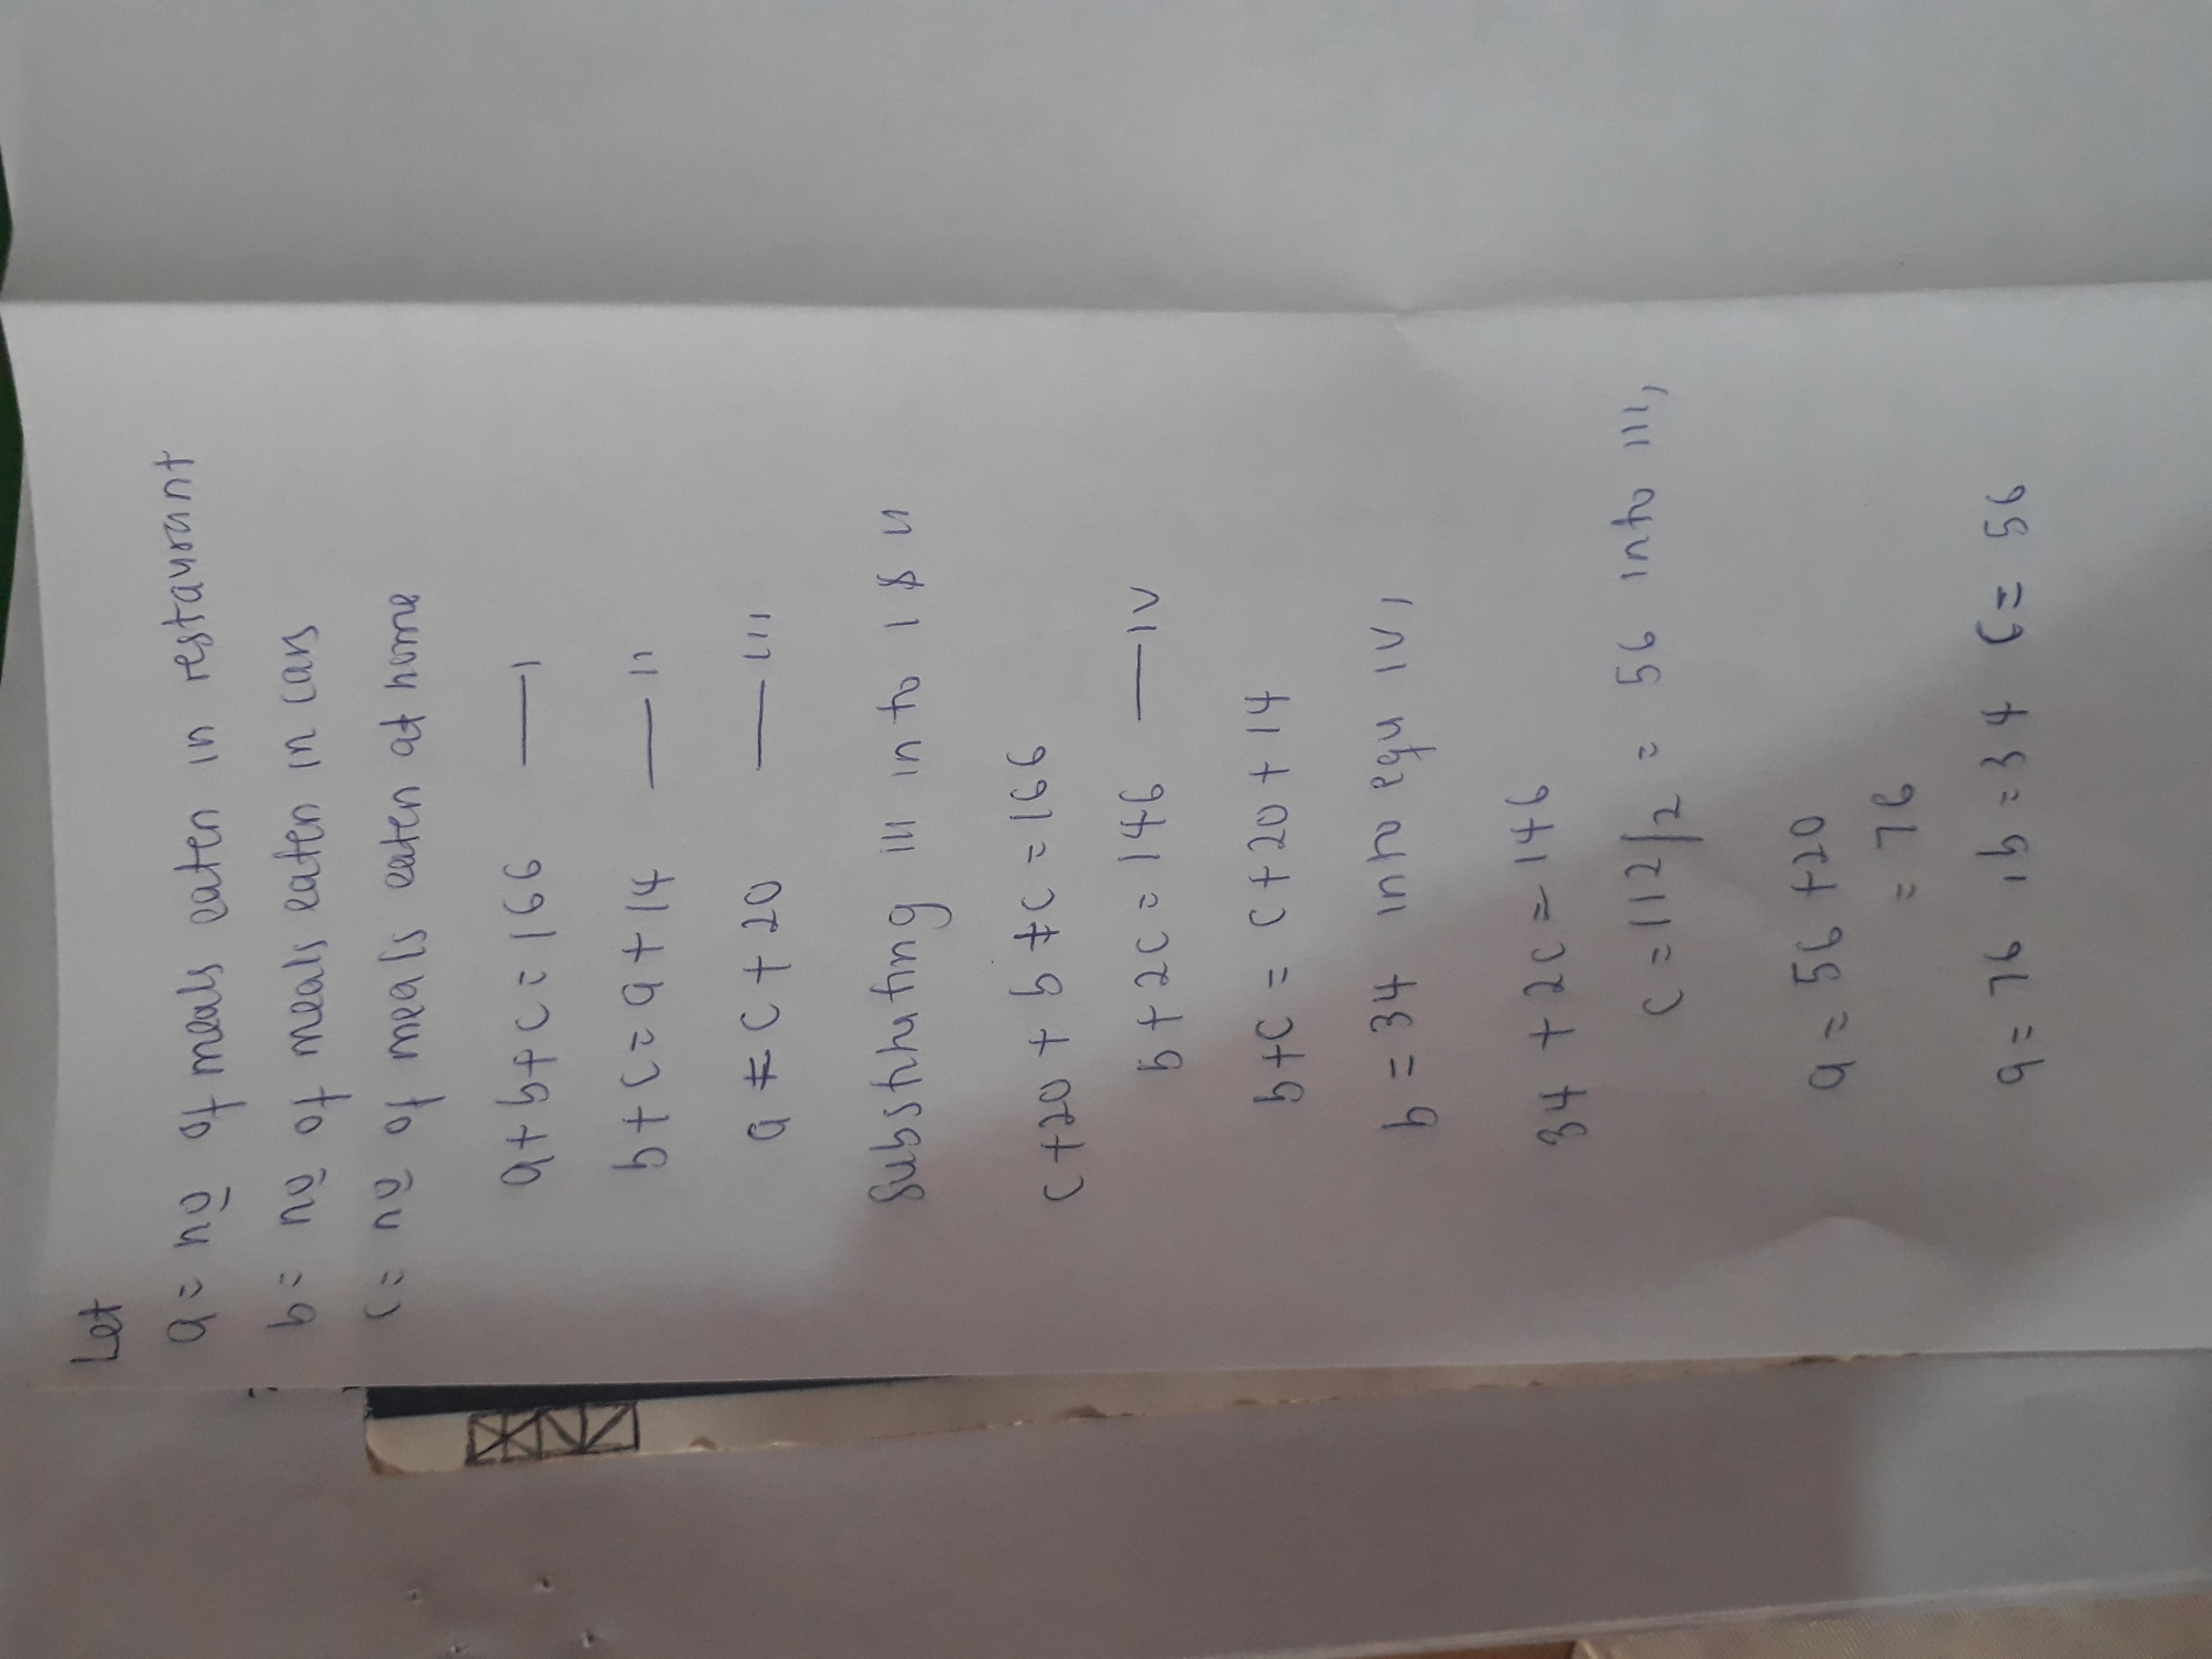 Let
a = no of meals eaten in restaurant
b = no of meals eaten in cars
c = no of meals eaten at home
a + b + c = 166 — I
b + c = a + 14 — II
a = c + 20 — III
Substituting III in to I & II
c + 20 + b + c = 166
b + 2c = 146 — IV
b + c = c + 20 + 14
b = 34 into eqn IV,
34 + 2c = 146
c = 112/2 = 56 into III,
a = 56 + 20
= 76
a = 76, b = 34 c = 56